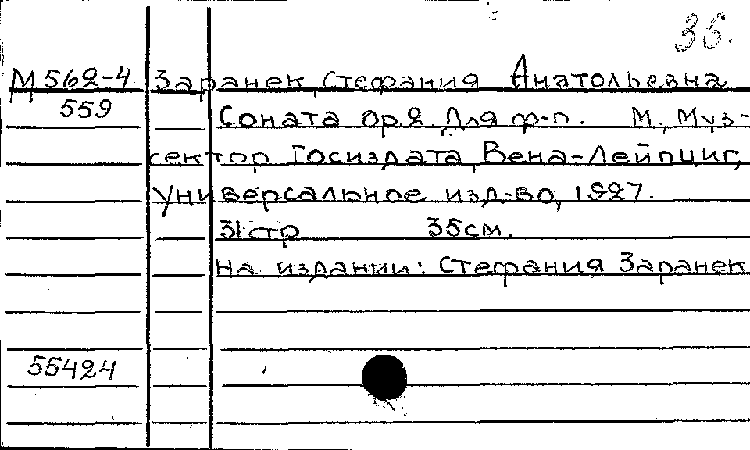 36.
М 562-4 Заранек, Стефания Анатольевна
559
Соната ор.2. Для ф-п. М., Муз-
сектор Госиздата, Вена-Лейпциг,
Универсальное изд-во, 1927.
31 стр 35см.
На издании: Стефания Заранек
55424